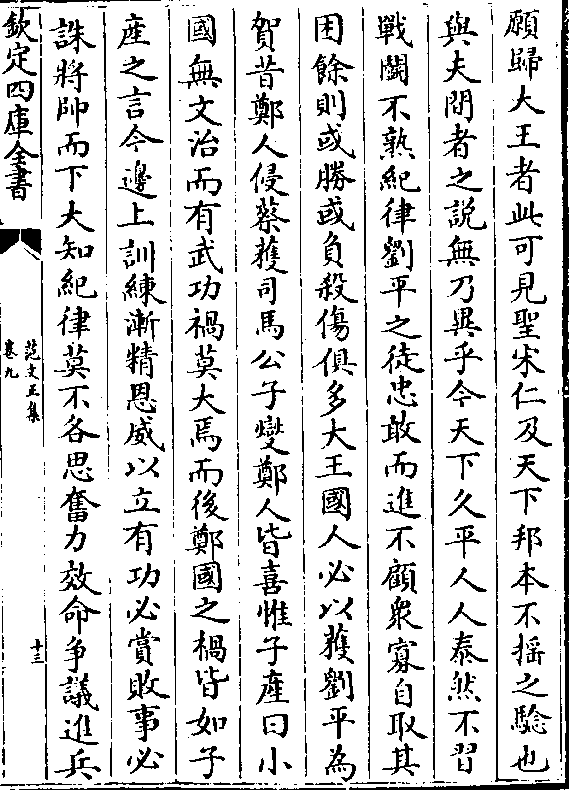 願歸大王者此可見聖宋仁及天下邦本不揺之驗也
與夫閒者之說無乃異乎今天下久平人人泰然不習
戰鬭不熟紀律劉平之徒忠敢而進不顧衆寡自取其
困餘則或勝或負殺傷俱多大王國人必以獲劉平為
賀昔鄭人侵蔡獲司馬公子燮鄭人皆喜惟子產曰小
國無文治而有武功禍莫大焉而後鄭國之禍皆如子
產之言今邊上訓練漸精恩威以立有功必賞敗事必
誅將帥而下大知紀律莫不各思奮力效命争議進兵
欽定四庫全書
范文正集
卷九
十三